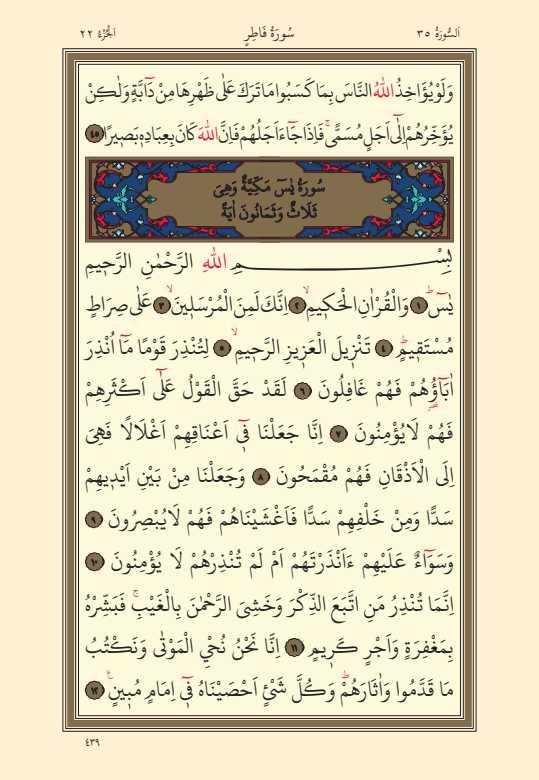 اَلسُّورَةُ ٣٥ سُورَةُ فَاطِرٍ اَلْجُزْءُ ٢٢
وَلَوْ يُؤَاخِذُ اللّٰهُ النَّاسَ بِمَا كَسَبُوا مَا تَرَكَ عَلٰى ظَهْرِهَا مِنْ دَٓابَّةٍ وَلٰكِنْ
يُؤَخِّرُهُمْ اِلٰٓى اَجَلٍ مُسَمًّىۚ فَاِذَا جَٓاءَ اَجَلُهُمْ فَاِنَّ اللّٰهَ كَانَ بِعِبَادِه۪ بَص۪يرًا ٤٥
سُورَةُ يٰسٓ مَكِّيَّةٌ وَهِيَ
ثَلَاثٌ وَثَمَانُونَ اٰيَةً
بِسْمِ اللّٰهِ الرَّحْمٰنِ الرَّح۪يمِ
يٰسٓۜ ١ وَالْقُرْاٰنِ الْحَك۪يمِۙ ٢ اِنَّكَ لَمِنَ الْمُرْسَل۪ينَۙ ٣ عَلٰى صِرَاطٍ
مُسْتَق۪يمٍۜ ٤ تَنْز۪يلَ الْعَز۪يزِ الرَّح۪يمِۙ ٥ لِتُنْذِرَ قَوْمًا مَٓا اُنْذِرَ
اٰبَٓاؤُ۬هُمْ فَهُمْ غَافِلُونَ ٦ لَقَدْ حَقَّ الْقَوْلُ عَلٰٓى اَكْثَرِهِمْ
فَهُمْ لَا يُؤْمِنُونَ ٧ اِنَّا جَعَلْنَا ف۪ٓي اَعْنَاقِهِمْ اَغْلَالًا فَهِيَ
اِلَى الْاَذْقَانِ فَهُمْ مُقْمَحُونَ ٨ وَجَعَلْنَا مِنْ بَيْنِ اَيْد۪يهِمْ
سَدًّا وَمِنْ خَلْفِهِمْ سَدًّا فَاَغْشَيْنَاهُمْ فَهُمْ لَا يُبْصِرُونَ ٩
وَسَوَٓاءٌ عَلَيْهِمْ ءَاَنْذَرْتَهُمْ اَمْ لَمْ تُنْذِرْهُمْ لَا يُؤْمِنُونَ ١٠
اِنَّمَا تُنْذِرُ مَنِ اتَّبَعَ الذِّكْرَ وَخَشِيَ الرَّحْمٰنَ بِالْغَيْبِۚ فَبَشِّرْهُ
بِمَغْفِرَةٍ وَاَجْرٍ كَر۪يمٍ ١١ اِنَّا نَحْنُ نُحْيِ الْمَوْتٰى وَنَكْتُبُ
مَا قَدَّمُوا وَاٰثَارَهُمْۜ وَكُلَّ شَيْءٍ اَحْصَيْنَاهُ ف۪ٓي اِمَامٍ مُب۪ينٍ۟ ١٢
٤٣٩